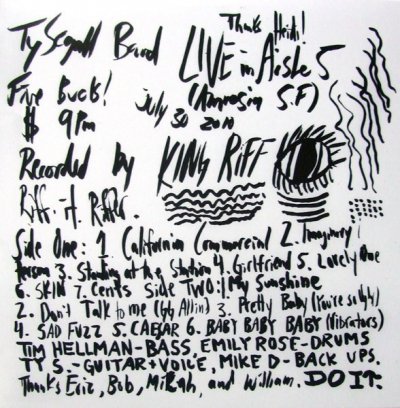 Thanks Heidi!
Ty Segall Band LIVE in Aisle 5
Five Bucks! (Amnesia S.F)
$ 9pm July 30 2010
Recorded by KING RIFF
Riff. it. Riffer.
Side One: 1. California Commercial 2. Imaginary
Person 3. Standing at the Station 4. Girlfriend 5. Lovely One
6. SKIN 7. Cents Side Two: 1. My Sunshine
2. Don't Talk to me (GG Allin) 3. Pretty Baby (You're so Ugly)
4. SAD FUZZ 5. CAESAR 6. BABY BABY BABY (Vibrators)
TIM HELLMAN-BASS, EMILY ROSE-DRUMS
TY S.-GUITAR+VOICE, MIKE D-BACK UPS.
Thanks Eric, Bob, Mikah, and William. DO IT.